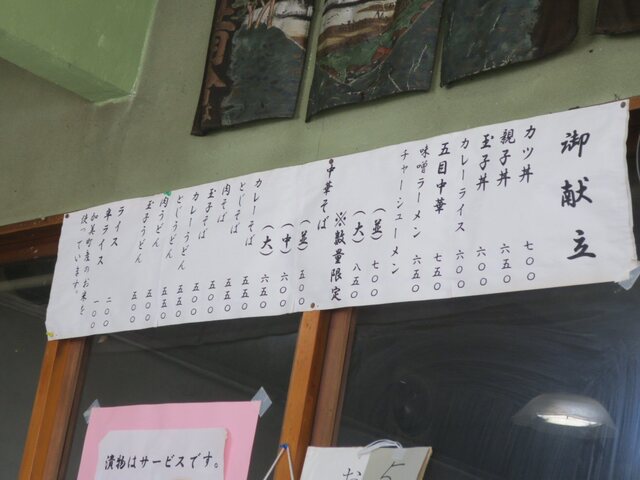 御献立
カツ丼 七〇〇
親子丼 六五〇
玉子丼 六〇〇
カレーライス 六〇〇
五目中華 七五〇
味噌ラーメン 六五〇
チャーシューメン
(並) 七〇〇
(大) 八五〇
※数量限定
中華そば
(並) 五〇〇
(中) 六〇〇
(大) 六五〇
カレーそば 五五〇
とじそば 五五〇
肉そば 五五〇
玉子そば 五〇〇
カレーうどん 五五〇
とじうどん 五五〇
肉うどん 五五〇
玉子うどん 五〇〇
ライス 二〇〇
半ライス 一〇〇
加美町産のお米を
使っています。
漬物はサービスです。